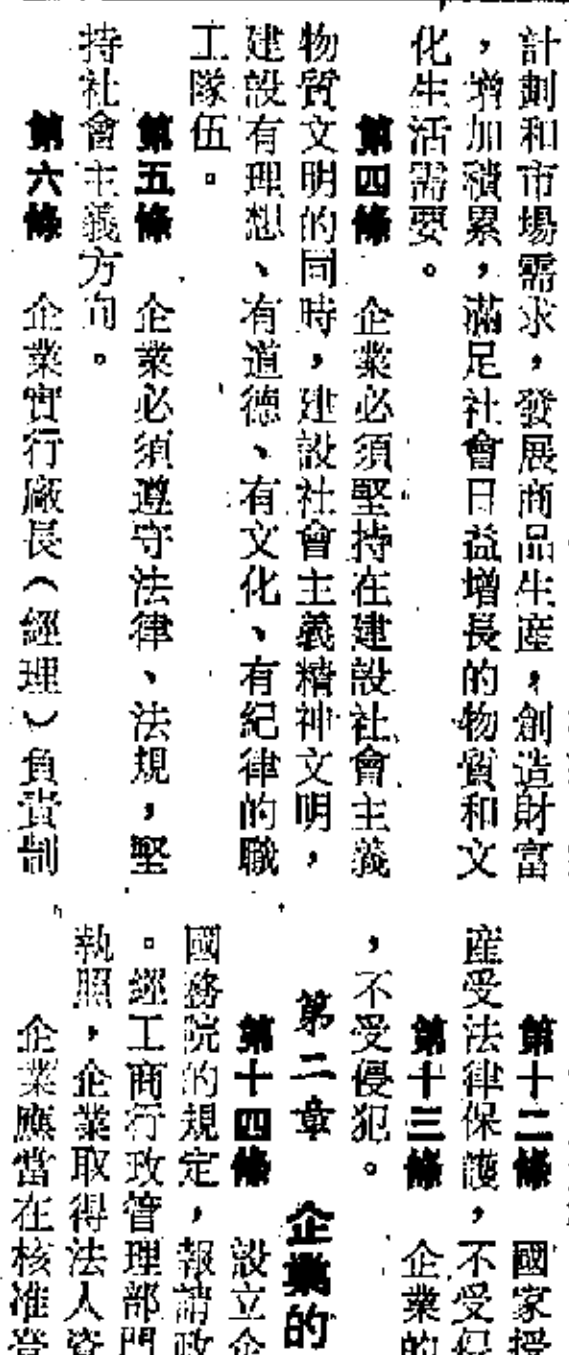 計劃和市場需求，發展商品生產，創造財富
，增加積累，滿足社會日益增長的物質和文
化生活需要。
第四條　企業必須堅持在建設社會主義
物質文明的同時，建設社會主義精神文明，
建設有理想、有道德、有文化、有紀律的職
工隊伍。
第五條　企業必須遵守法律、法規，堅
持社會主義方向。
第六條　企業實行廠長（經理）負責制
第十二條　國家授
產受法律保護，不受侵
第十三條　企業的
，不受侵犯。
第二章　企業的
第十四條　設立企
國務院的規定，報請政
。經工商行政管理部門
執照，企業取得法人資
企業應當在核准登